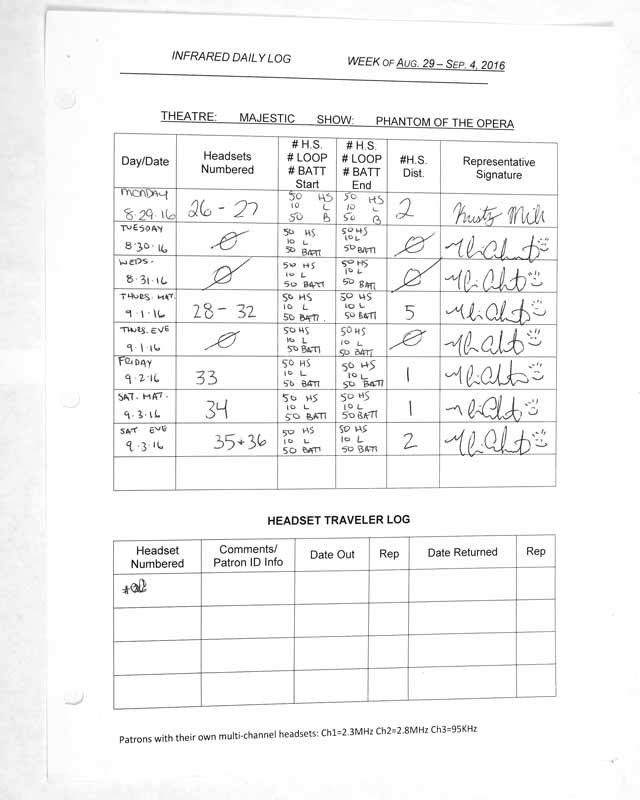 INFRARED DAILY LOG WEEK OF AUG. 29 – SEP. 4, 2016
THEATRE: MAJESTIC SHOW: PHANTOM OF THE OPERA
Day/Date Headsets Numbered # H.S. # LOOP # BATT Start # H.S. # LOOP # BATT End #H.S. Dist. Representative Signature
MONDAY 8.29.16 26 - 27 50 HS 10 L 50 B 50 HS 10 L 50 B 2 Kristy
TUESDAY 8.30.16 Ø 50 HS 10 L 50 BATT 50 HS 10 L 50 BATT Ø
WEDS. 8.31.16 Ø 50 HS 10 L 50 BATT 50 HS 10 L 50 BATT Ø
THURS. MAT. 9.1.16 28 - 32 50 HS 10 L 50 BATT. 50 HS 10 L 50 BATT 5
THURS. EVE 9.1.16 Ø 50 HS 10 L 50 BATT 50 HS 10 L 50 BATT Ø
FRIDAY 9.2.16 33 50 HS 10 L 50 BATT 50 HS 10 L 50 BATT 1
SAT. MAT. 9.3.16 34 50 HS 10 L 50 BATT 50 HS 10 L 50 BATT 1
SAT EVE 9.3.16 35+36 50 HS 10 L 50 BATT 50 HS 10 L 50 BATT 2
HEADSET TRAVELER LOG
Headset Numbered Comments/ Patron ID Info Date Out Rep Date Returned Rep
Patrons with their own multi-channel headsets: Ch1=2.3MHz Ch2=2.8MHz Ch3=95KHz